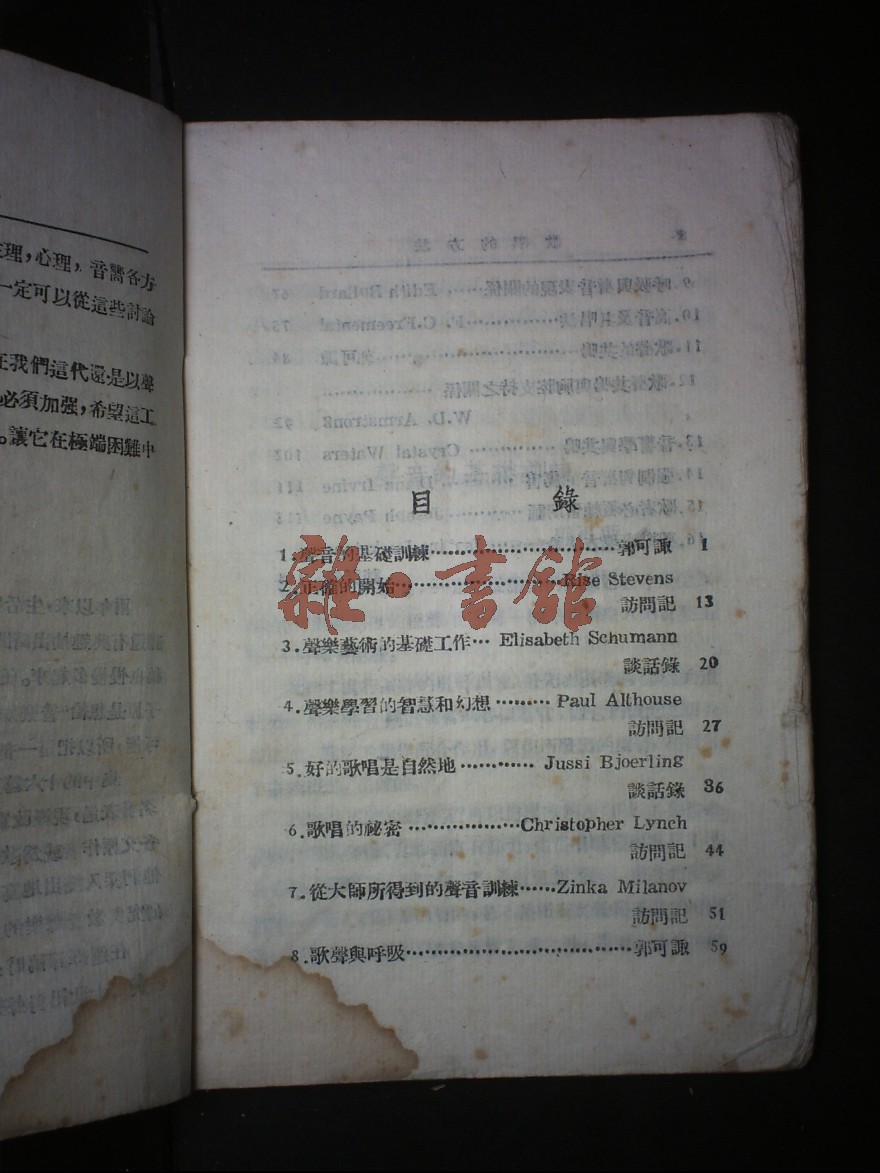 生理，心理，音響各方
一定可以從這些討論
在我們這代還是以聲
必須加强，希望這工
。讓它在極端困難中
目 錄
1.聲音的基礎訓練……郭可諏 1
2.正確的開始……Rise Stevens
訪問記 13
3.聲樂藝術的基礎工作… Elisabeth Schumann
談話錄 20
4.聲樂學習的智慧和幻想……… Paul Althouse
訪問記 27
5.好的歌唱是自然地………… Jussi Bjoerling
談話錄 36
6.歌唱的祕密………………Christopher Lynch
訪問記 44
7.從大師所得到的聲音訓練……Zinka Milanov
訪問記 51
8.歌聲與呼吸……………………………郭可諏 59
雜·書館